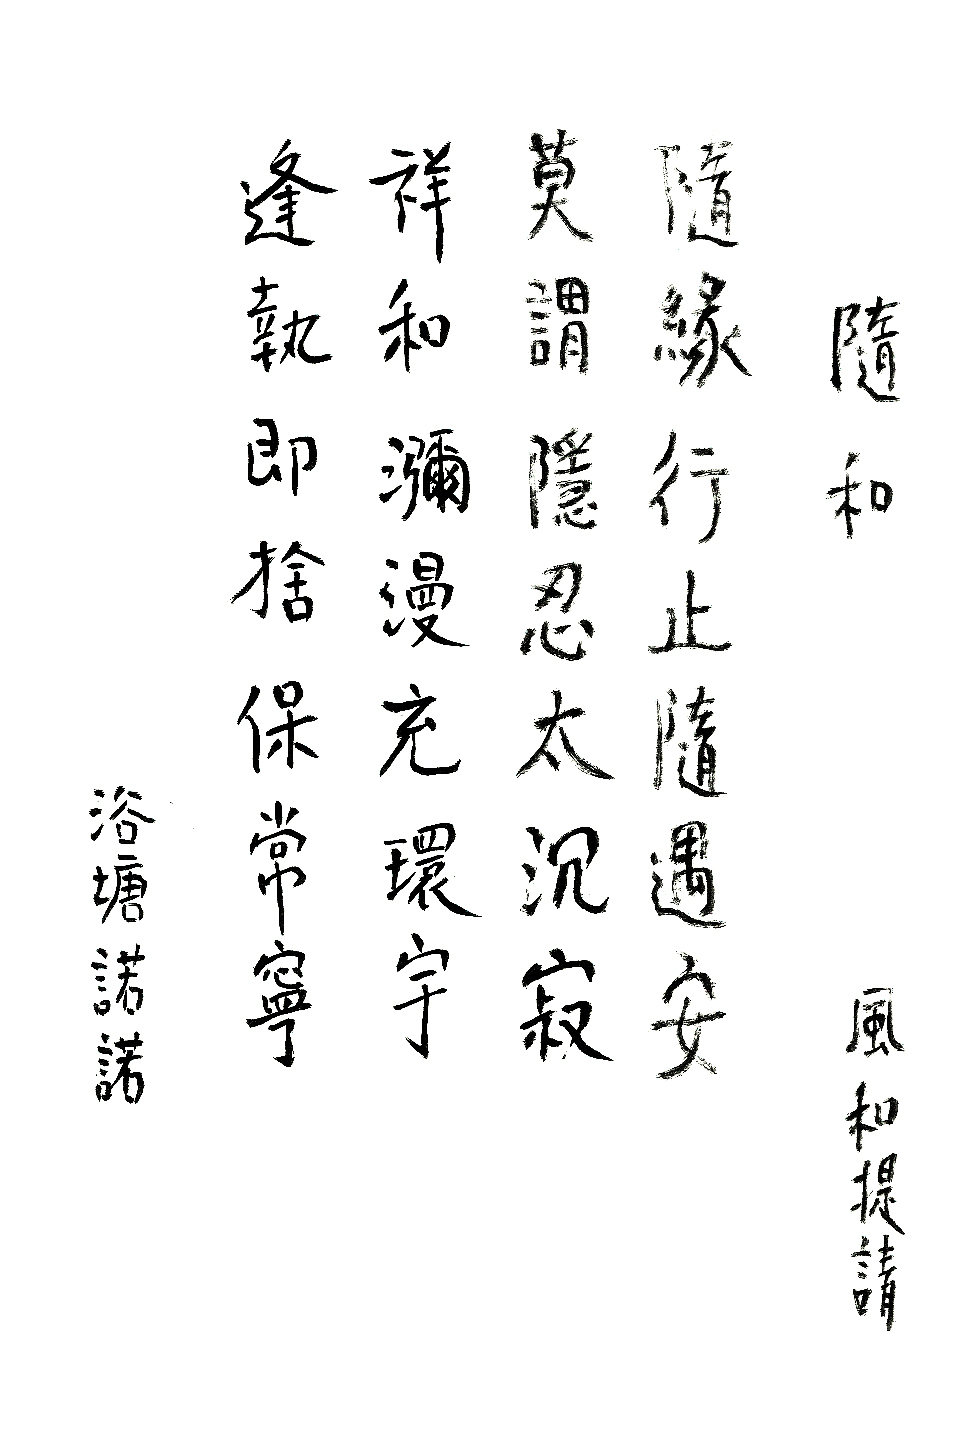 隨和
風和提請
隨緣行止隨遇安
莫謂隱忍太沉寂
祥和瀰漫充環宇
逢執即捨保常寧
浴塘諾諾